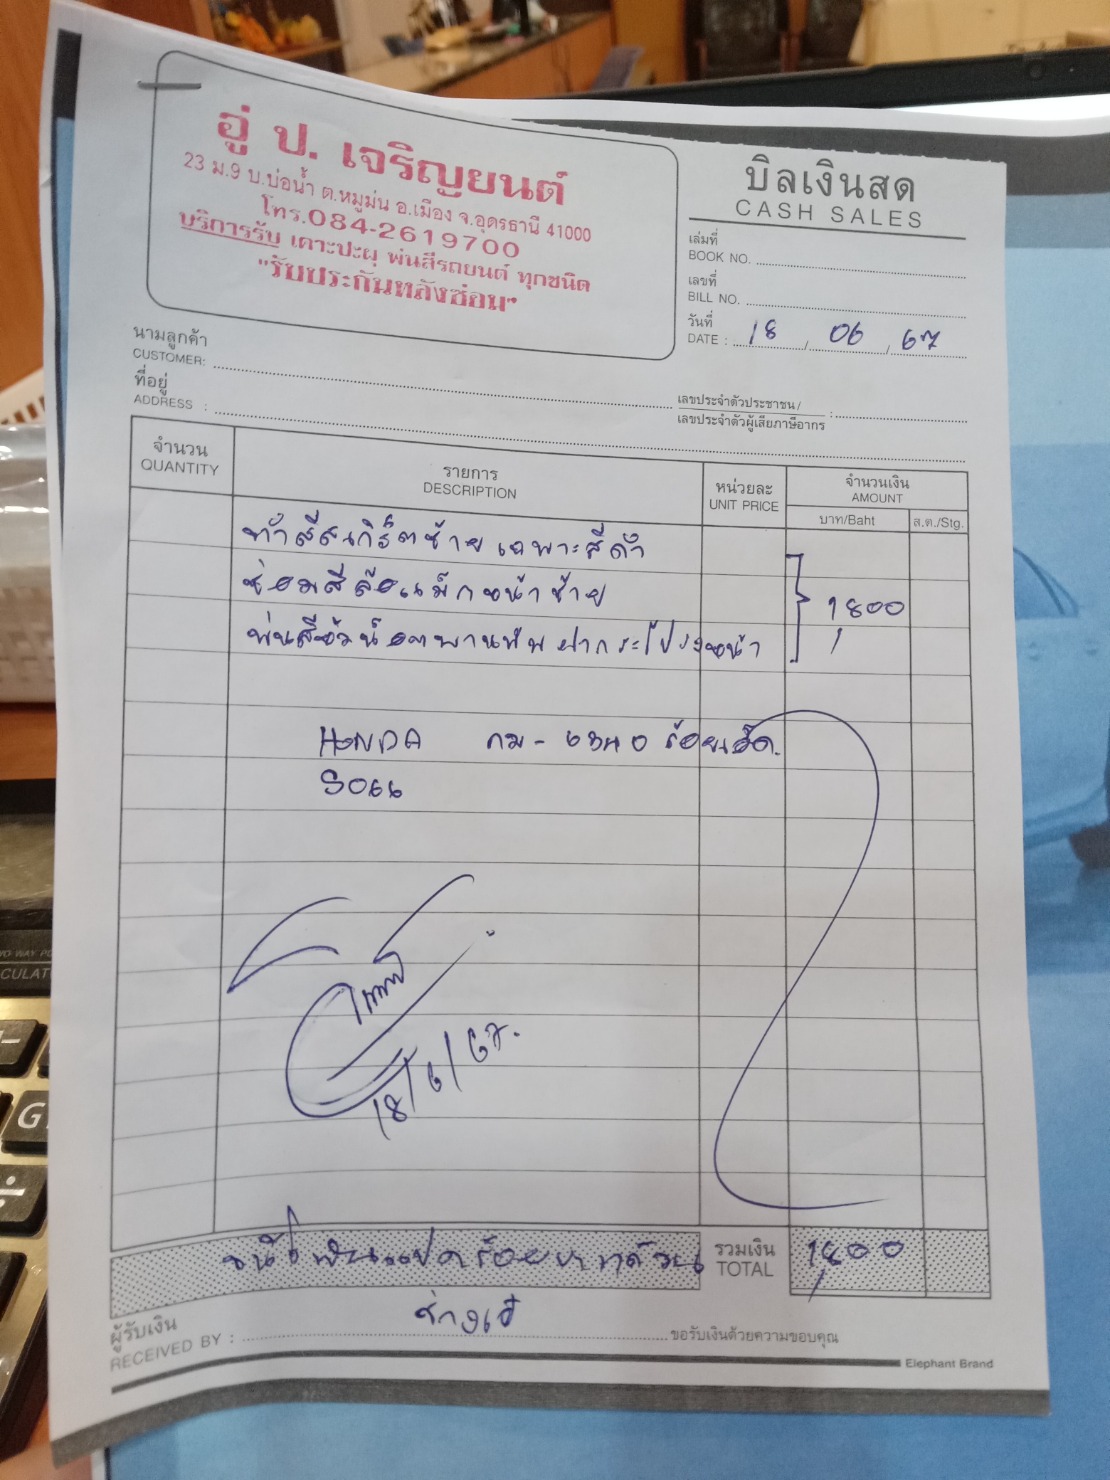 อู่ ป. เจริญยนต์
23 ม.9 บ.บ่อน้ำ ต.หมูม่น อ.เมือง จ.อุดรธานี 41000
โทร.084-2619700
บริการรับ เคาะปะผุ พ่นสีรถยนต์ ทุกชนิด
"รับประกันหลังซ่อม"
บิลเงินสด
CASH SALES
เล่มที่
BOOK NO.
เลขที่
BILL NO.
วันที่
DATE : 18 / 06 / 67
นามลูกค้า
CUSTOMER:
ที่อยู่
ADDRESS :
เลขประจำตัวประชาชน /
เลขประจำตัวผู้เสียภาษีอากร :
จำนวน
QUANTITY
รายการ
DESCRIPTION
หน่วยละ
UNIT PRICE
จำนวนเงิน
AMOUNT
บาท/Baht
ส.ต./Stg.
ทำสีสเกิร์ตซ้าย เฉพาะสีดำ
ซ่อมสีล้อแม็กหน้าซ้าย
1,800
พ่นสีหัวน็อตบานพับฝากระโปรงหน้า
HONDA กม - ร้อยเอ็ด.
18/6/67.
หนึ่งพันแปดร้อยบาทถ้วน
รวมเงิน
TOTAL
1,800
ผู้รับเงิน
RECEIVED BY :
ขอรับเงินด้วยความขอบคุณ
Elephant Brand